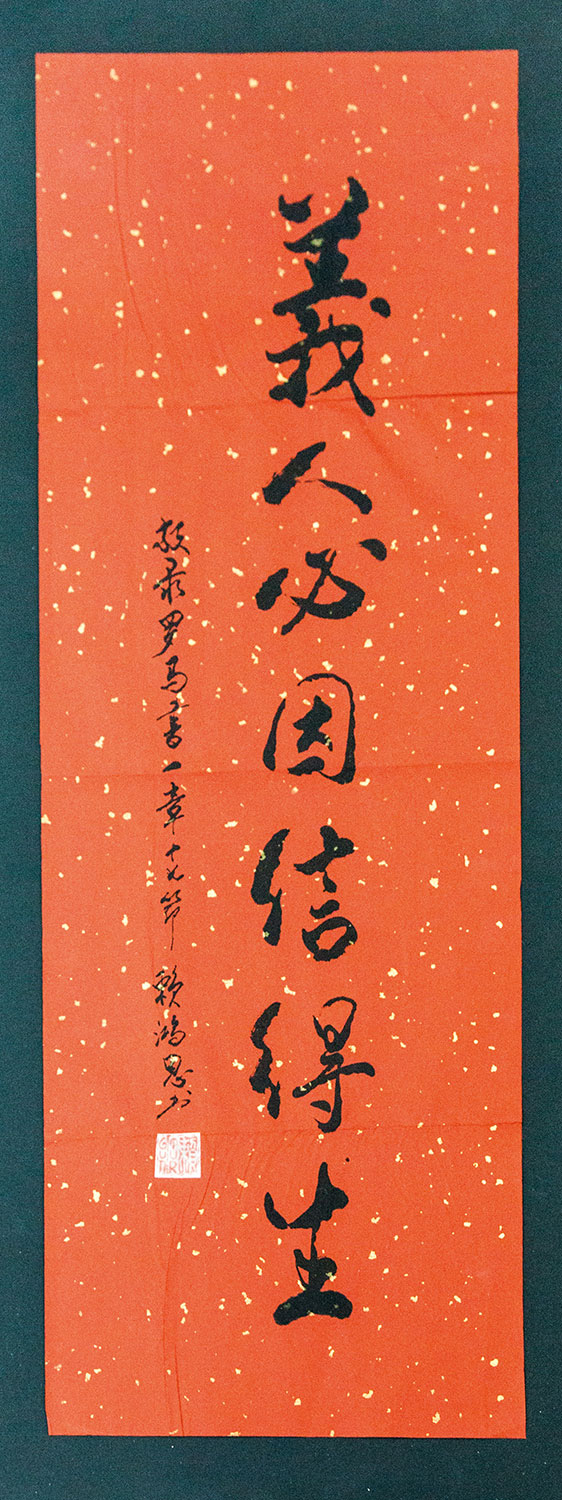 義人必因信得生
敬录罗马书一章十七节 赖鸿恩书